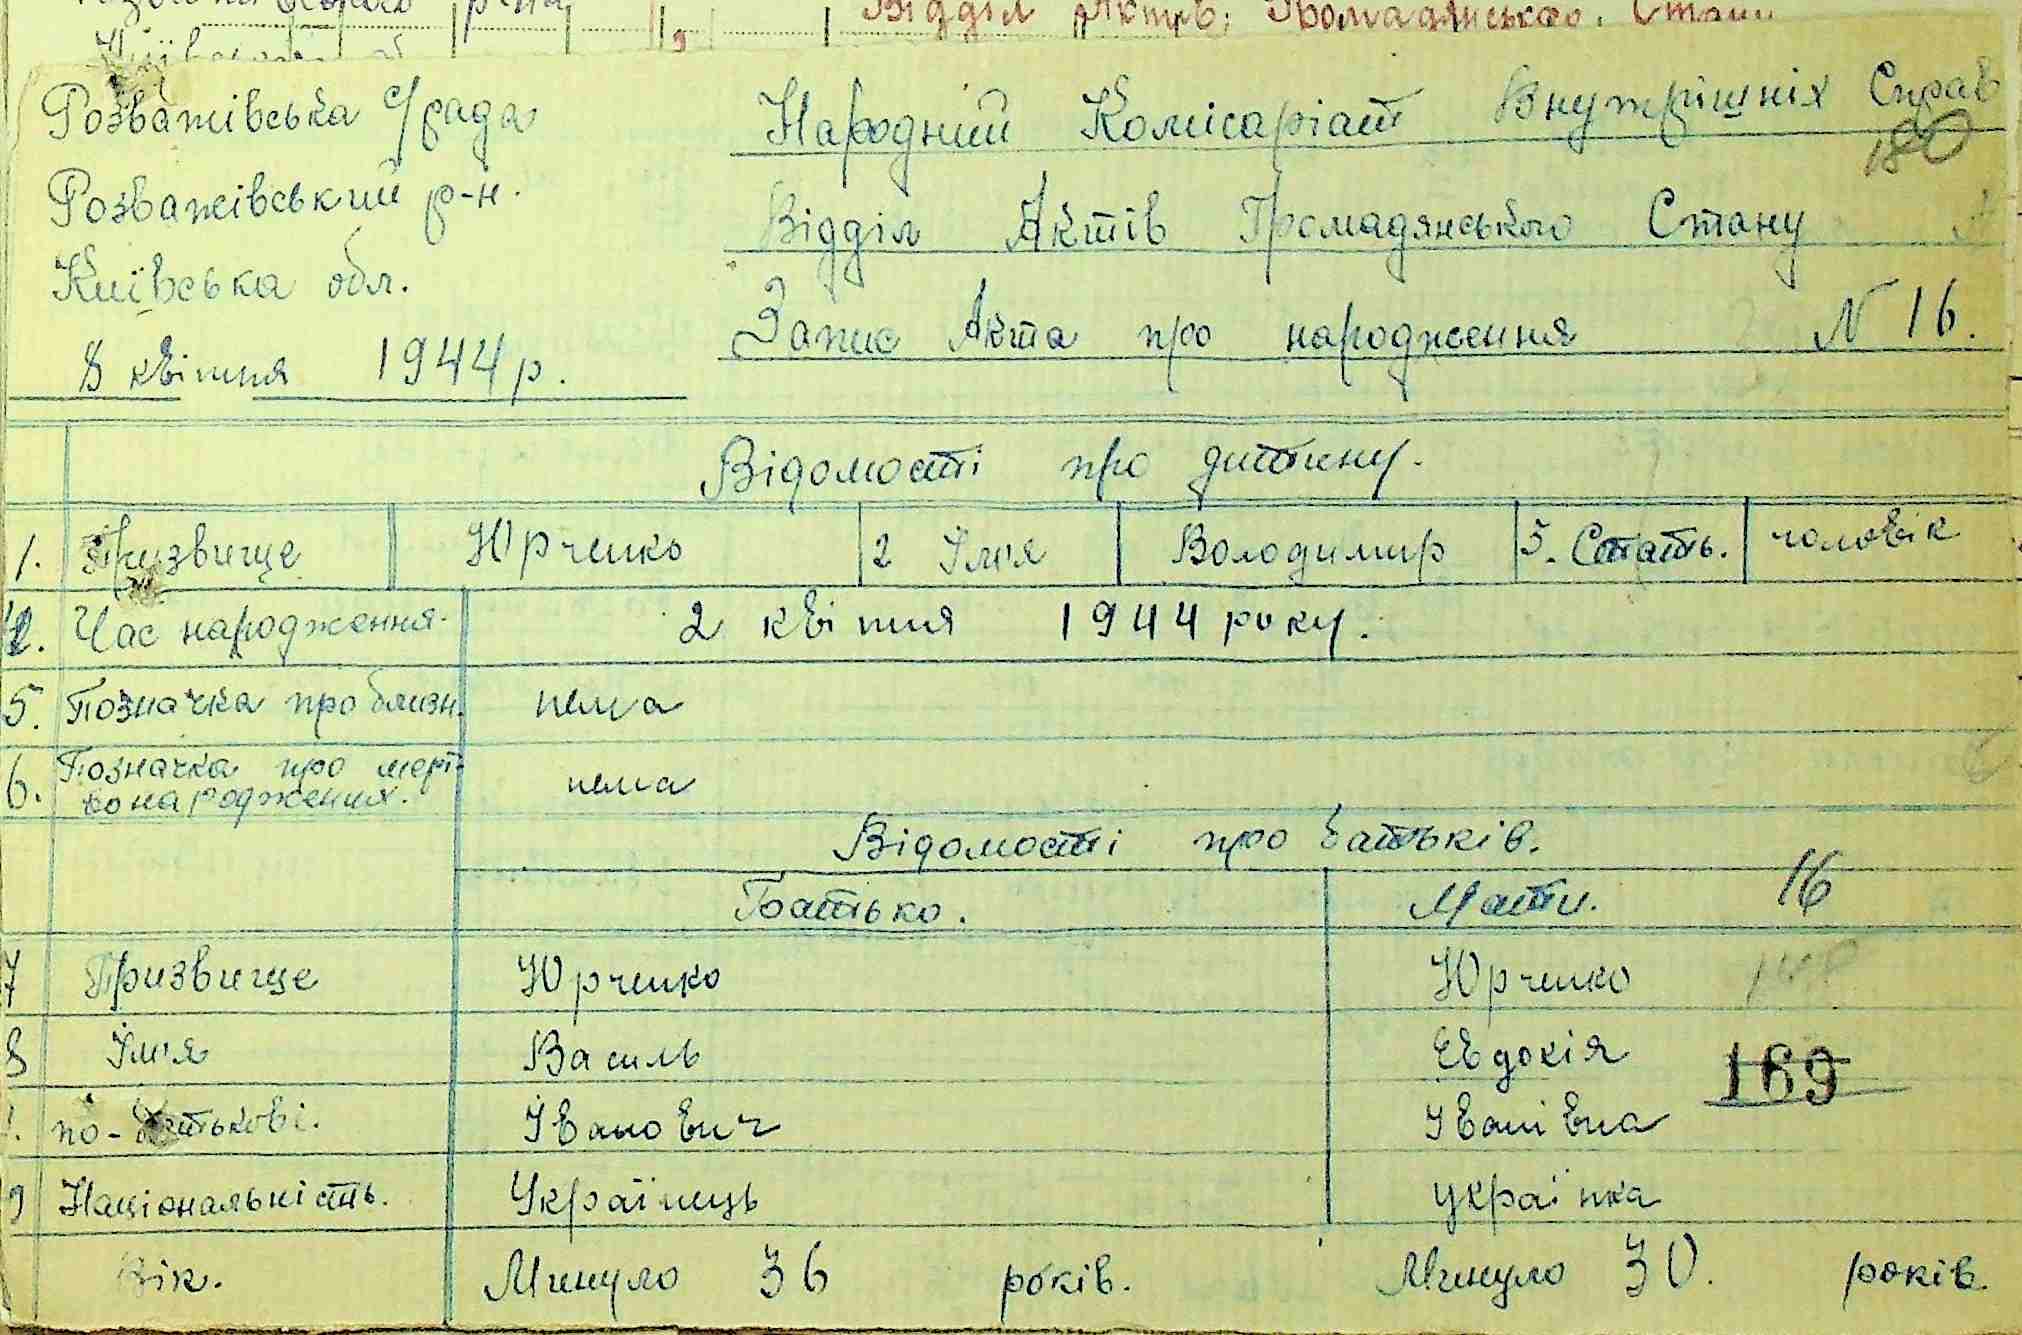 Відділ Актів. Громадянськго. Стану
Розважівська с/рада
Розважівський р-н.
Київська обл.
8 квітня 1944 р.
Народний Комісаріат Внутрішніх Справ
180
Відділ Актів Громадянського Стану
Запис Акта про народження N 16.
Відомості про дитину.
1. Призвище Юрченко 2 Ім'я Володимир 3. Стать. чоловік
4. Час народження. 2 квітня 1944 року.
5. Позначка про близн. нема
6. Позначка про мерт-
вонароджених. нема
Відомості про батьків.
Батько. Мати. 16
7 Призвище Юрченко Юрченко
8 Ім'я Василь Евдокія 169
по-батькові. Іванович Іванівна
9 Національність. Українець українка
Вік. Минуло 36 років. Минуло 30. років.